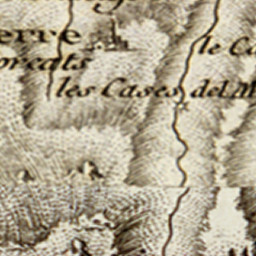 erre
le Ca
orcats
les Cases del M